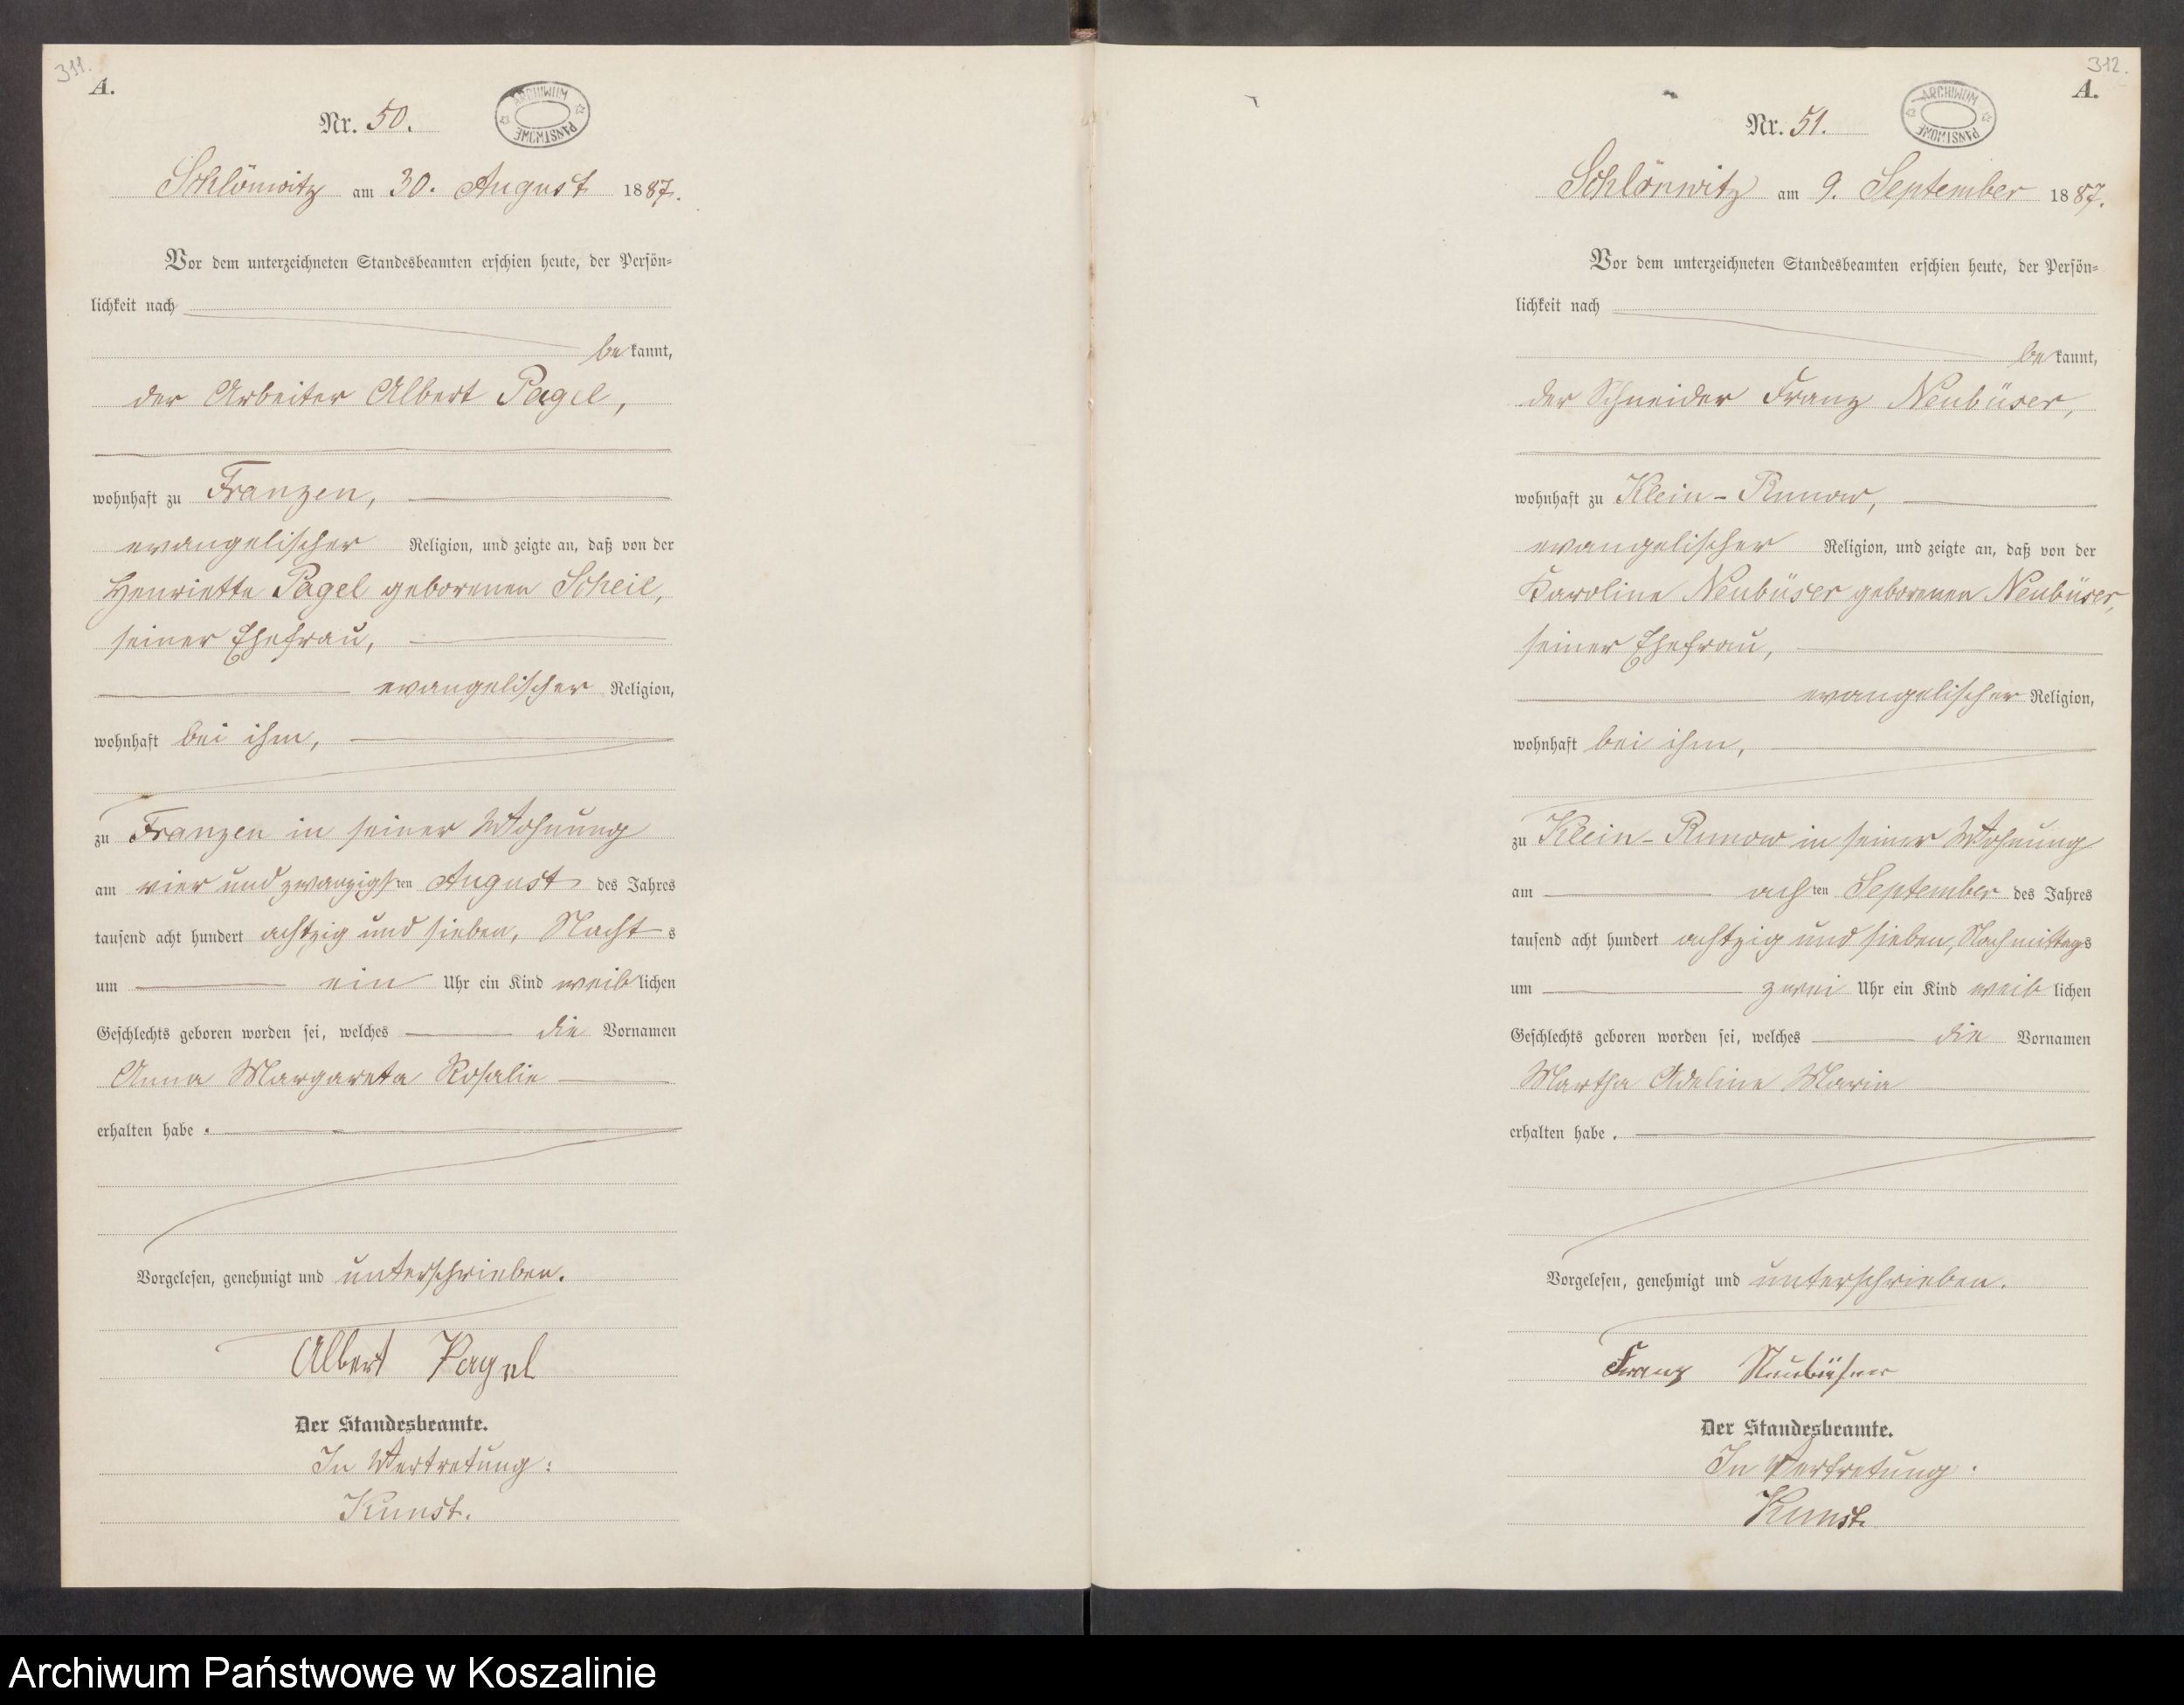 311.
A.
ARCHIWUM PAŃSTWOWE
Nr. 50.
Schlönwitz am 30. August 1887.
Vor dem unterzeichneten Standesbeamten erschien heute, der Persön-
lichkeit nach
bekannt,
der Arbeiter Albert Pagel,
wohnhaft zu Franzen,
evangelischer Religion, und zeigte an, daß von der
Henriette Pagel geborenen Scheil,
seiner Ehefrau,
evangelischer Religion,
wohnhaft bei ihm,
zu Franzen in seiner Wohnung
am vier und zwanzigsten August des Jahres
tausend acht hundert achtzig und sieben, Nachts
um ein Uhr ein Kind weiblichen
Geschlechts geboren worden sei, welches die Vornamen
Anna Margareta Rosalie
erhalten habe.
Vorgelesen, genehmigt und unterschrieben.
Albert Pagel
Der Standesbeamte.
In Vertretung:
Kunst.
312.
A.
ARCHIWUM PAŃSTWOWE
Nr. 51.
Schlönwitz am 9. September 1887.
Vor dem unterzeichneten Standesbeamten erschien heute, der Persön-
lichkeit nach
bekannt,
der Schneider Franz Neubüser,
wohnhaft zu Klein-Runow,
evangelischer Religion, und zeigte an, daß von der
Karoline Neubüser geborenen Neubüser,
seiner Ehefrau,
evangelischer Religion,
wohnhaft bei ihm,
zu Klein-Runow in seiner Wohnung
am achten September des Jahres
tausend acht hundert achtzig und sieben, Nachmittags
um zwei Uhr ein Kind weiblichen
Geschlechts geboren worden sei, welches die Vornamen
Martha Adeline Maria
erhalten habe.
Vorgelesen, genehmigt und unterschrieben.
Franz Neubüser
Der Standesbeamte.
In Vertretung:
Kunst.
Archiwum Państwowe w Koszalinie